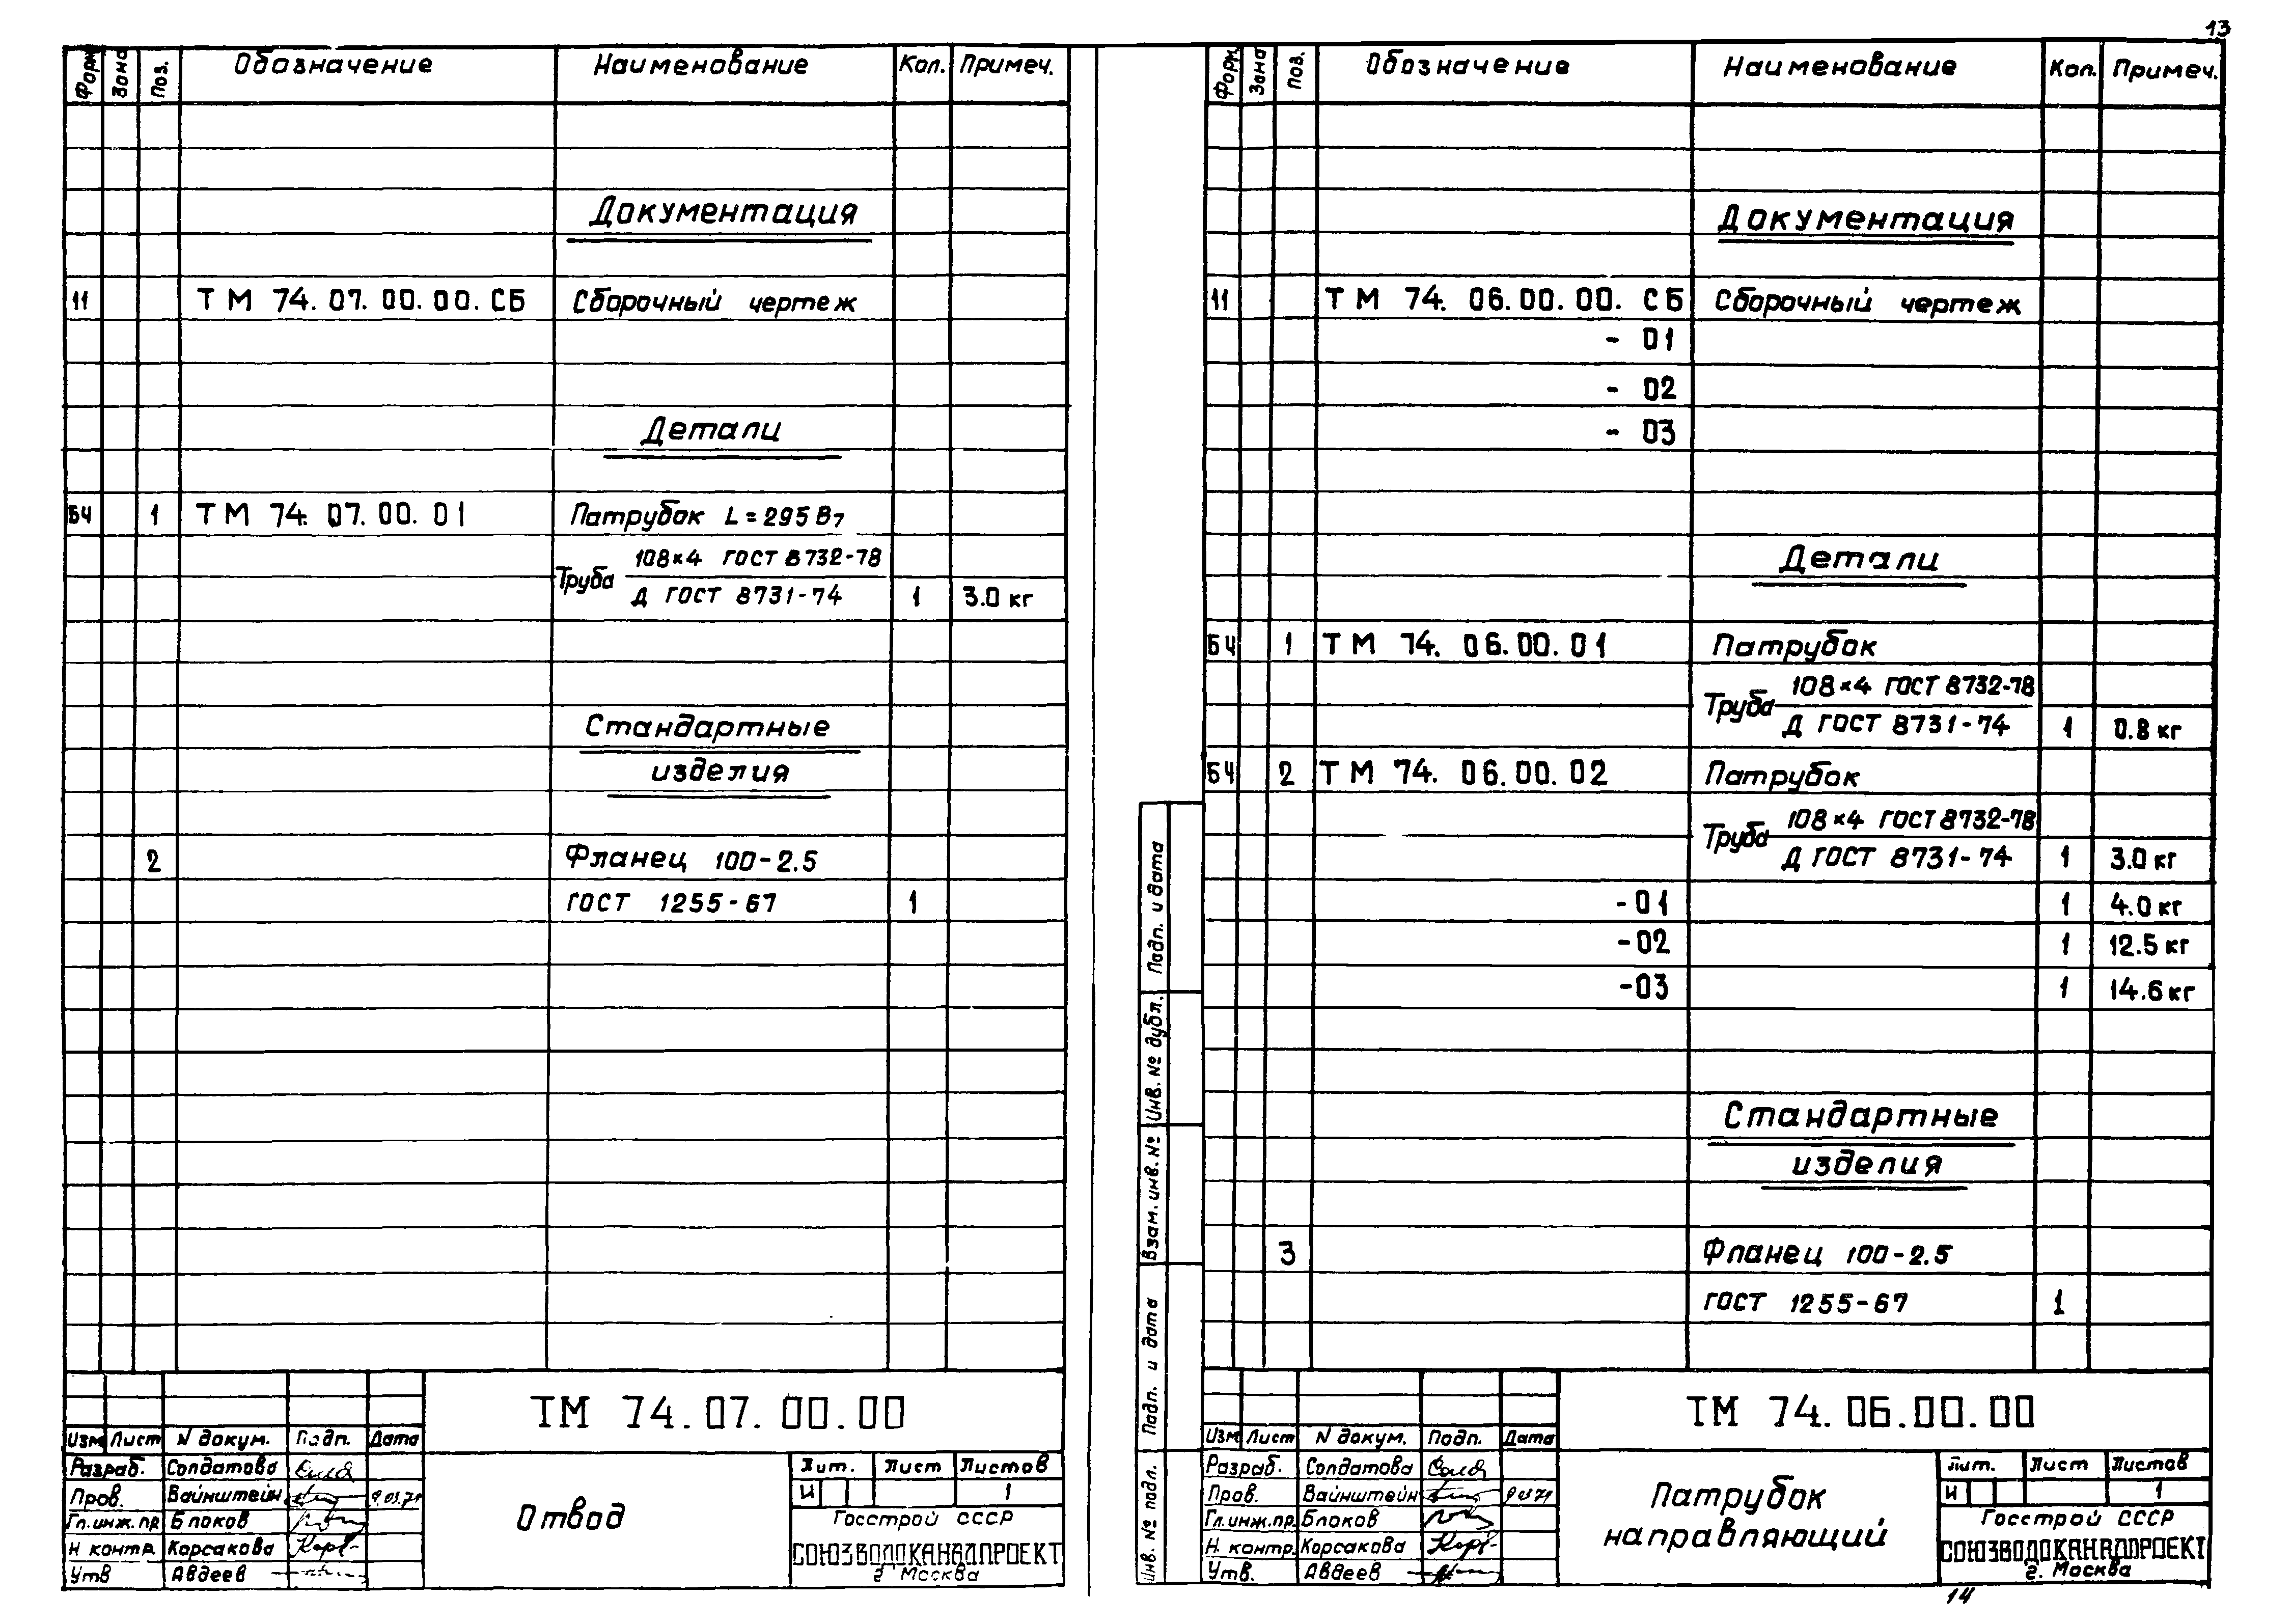 13
Форм. Зона Поз. Обозначение Наименование Кол. Примеч.
Документация
11 ТМ 74.07.00.00.СБ Сборочный чертеж
Детали
БЧ 1 ТМ 74.07.00.01 Патрубок L=295 В7
Труба 108×4 ГОСТ 8732-78
Д ГОСТ 8731-74 1 3.0 кг
Стандартные
изделия
2 Фланец 100-2.5
ГОСТ 1255-67 1
ТМ 74.07.00.00
Изм Лист N докум. Подп. Дата
Разраб. Солдатова
Пров. Вайнштейн
Гл.инж.пр Блоков
Н контр. Корсакова
Утв Авдеев
Отвод
Лит. Лист Листов
И 1
Госстрой СССР
СОЮЗВОДОКАНАЛПРОЕКТ
г Москва
Форм. Зона Поз. Обозначение Наименование Кол. Примеч.
Документация
11 ТМ 74.06.00.00.СБ Сборочный чертеж
- 01
- 02
- 03
Детали
БЧ 1 ТМ 74.06.00.01 Патрубок
Труба 108×4 ГОСТ 8732-78
Д ГОСТ 8731-74 1 0.8 кг
БЧ 2 ТМ 74.06.00.02 Патрубок
Труба 108×4 ГОСТ 8732-78
Д ГОСТ 8731-74 1 3.0 кг
-01 1 4.0 кг
-02 1 12.5 кг
-03 1 14.6 кг
Стандартные
изделия
3 Фланец 100-2.5
ГОСТ 1255-67 1
Подп. и дата
Инв. № дубл.
Взам. инв. №
Подп. и дата
Инв. № подл.
ТМ 74.06.00.00
Изм Лист N докум. Подп. Дата
Разраб. Солдатова
Пров. Вайнштейн
Гл.инж.пр. Блоков
Н. контр. Корсакова
Утв. Авдеев
Патрубок
направляющий
Лит. Лист Листов
И 1
Госстрой СССР
СОЮЗВОДОКАНАЛПРОЕКТ
г. Москва
14